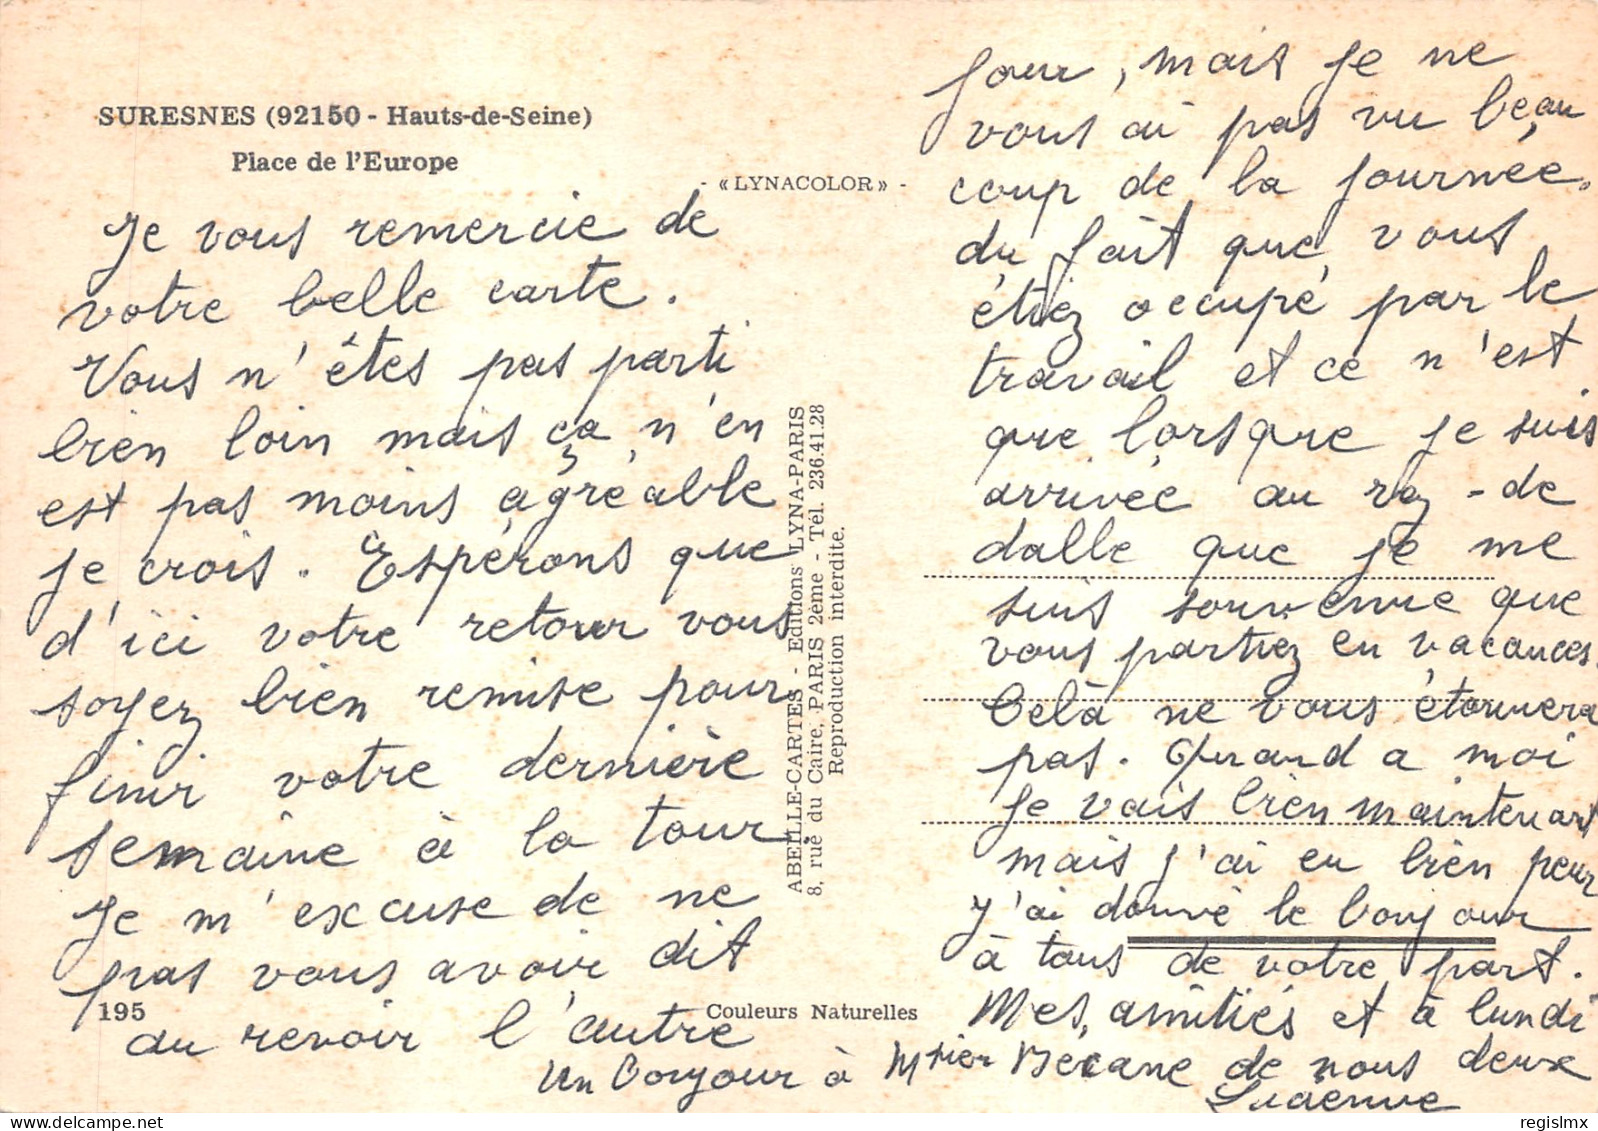 SURESNES (92150 - Hauts-de-Seine)
Place de l'Europe
- «LYNACOLOR» -
Je vous remercie de
votre belle carte.
Vous n'êtes pas parti
bien loin mais ça n'en
est pas moins agréable
je crois. Espérons que
d'ici votre retour vous
soyez bien remise pour
finir votre dernière
semaine à la tour
Je m'excuse de ne
pas vous avoir dit
au revoir l'autre
jour, mais je ne
vous ai pas vu beau
coup de la journée.
du fait que vous
étiez occupé par le
travail et ce n'est
que lorsque je suis
arrivée au rez-de
dalle que je me
suis souvenue que
vous partiez en vacances.
Celà ne vous étonnera
pas. Quand a moi
je vais bien maintenant
mais j'ai eu bien peur
J'ai donné le bonjour
à tous de votre part.
Mes amitiés et à lundi
Un Bonjour à Msier Bécane de nous deux
Lucienne
ABEILLE-CARTES - Editions LYNA-PARIS
8, rue du Caire, PARIS 2ème - Tél. 236.41.28
Reproduction interdite.
195
Couleurs Naturelles
delcampe.net
regislmx